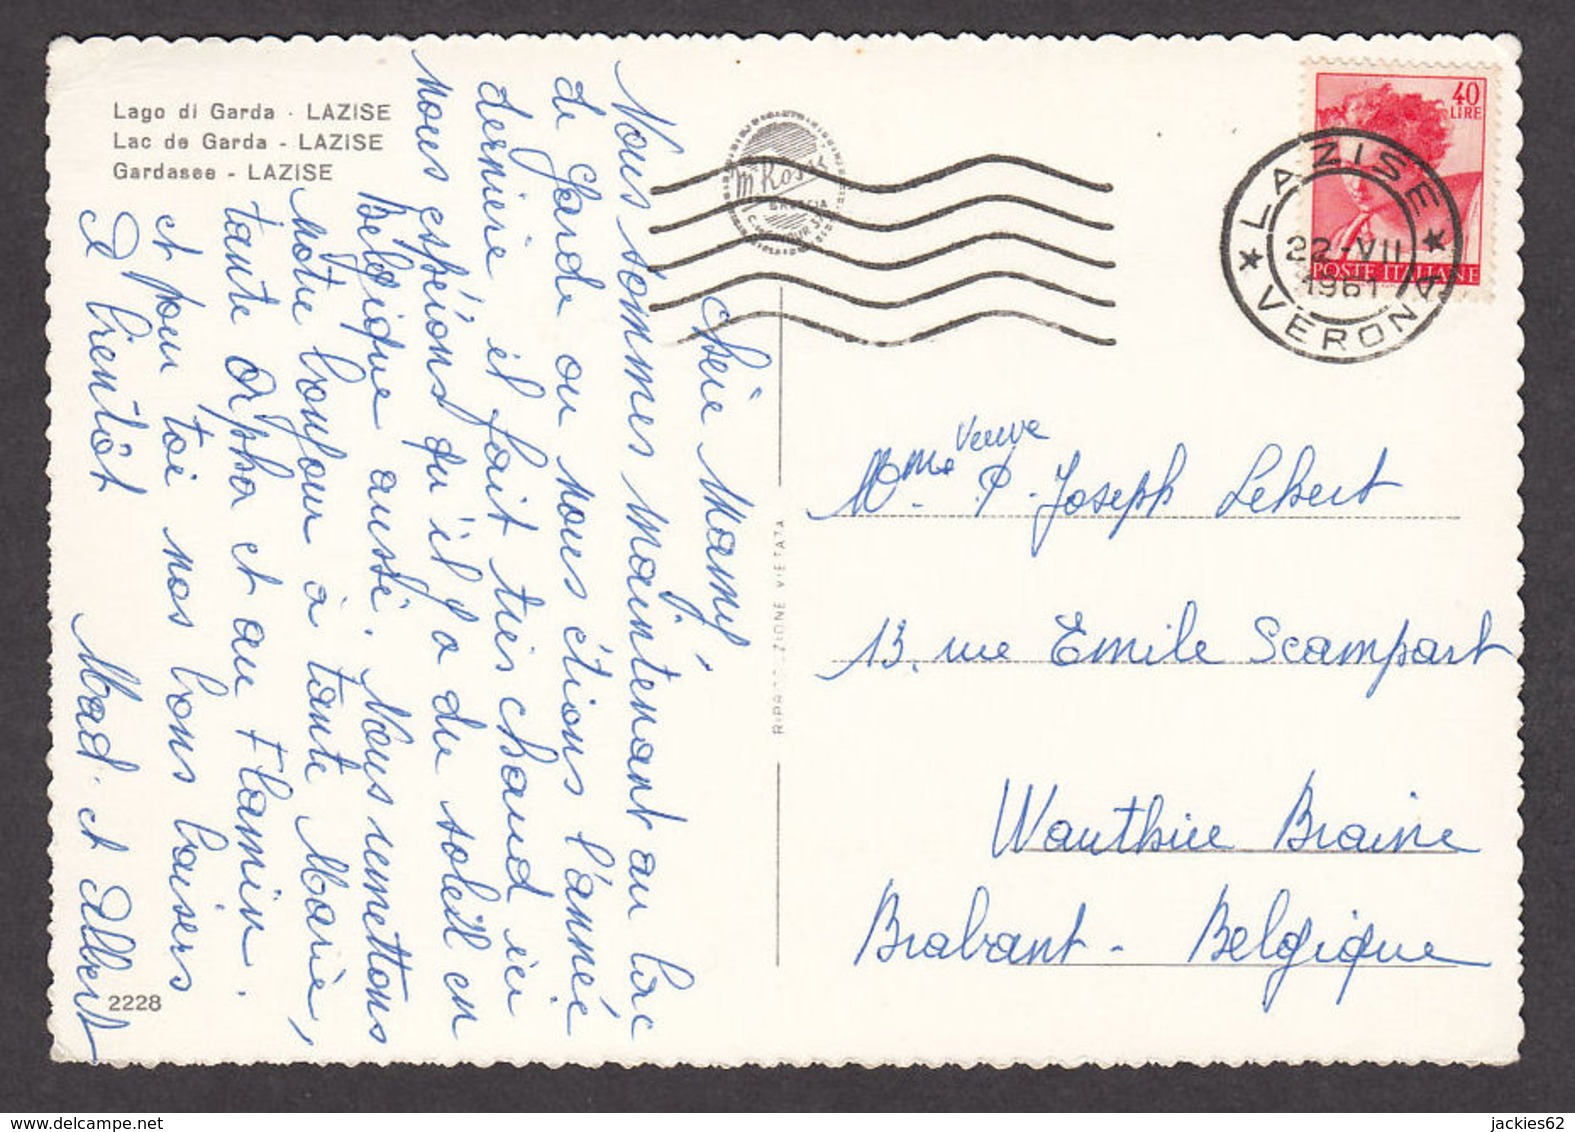 Lago di Garda - LAZISE
Lac de Garda - LAZISE
Gardasee - LAZISE
Chère Mamy
Nous sommes maintenant au lac
de Garde ou nous étions l'année
dernière il fait très chaud ici
nous espérons qu'il y a du soleil en
Belgique aussi. Nous remettons
notre bonjour à tante Marie,
tante Orpha et au Flamin.
et pour toi nos bons baisers
A bientôt
Mad. et Albert
2228
RIPRODUZIONE VIETATA
40
LIRE
POSTE ITALIANE
LAZISE
22-VII
1961
VERONA
Mme Veuve P. Joseph Lebert
13, rue Emile Scampart
Wauthier Braine
Brabant - Belgique
jackies62